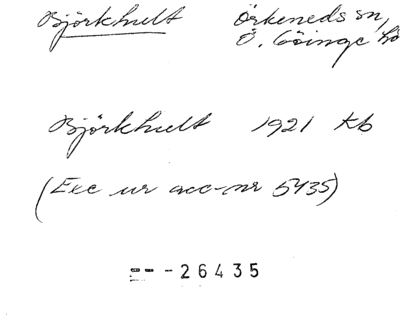 Björkhult Örkeneds sn,
Ö. Göinge hd
Björkhult 1921 kb
(Exc ur acc-nr 5435)
--- 26435